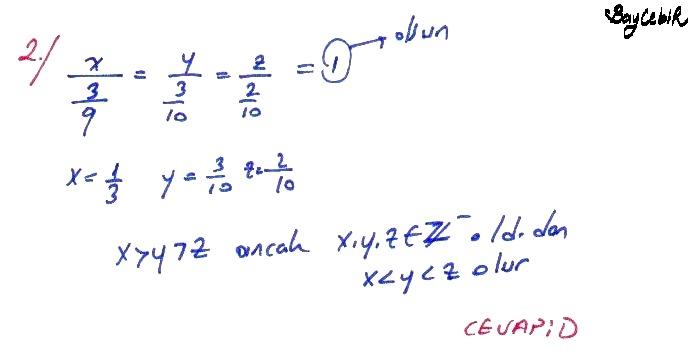 BayCebiR
2./ x/(3/9) = y/(3/10) = z/(2/10) = 1 → olsun
x = 1/3 y = 3/10 z = 2/10
x>y>z ancak x,y,z ∈ Z⁻ old.dan
x<y<z olur
CEVAP: D